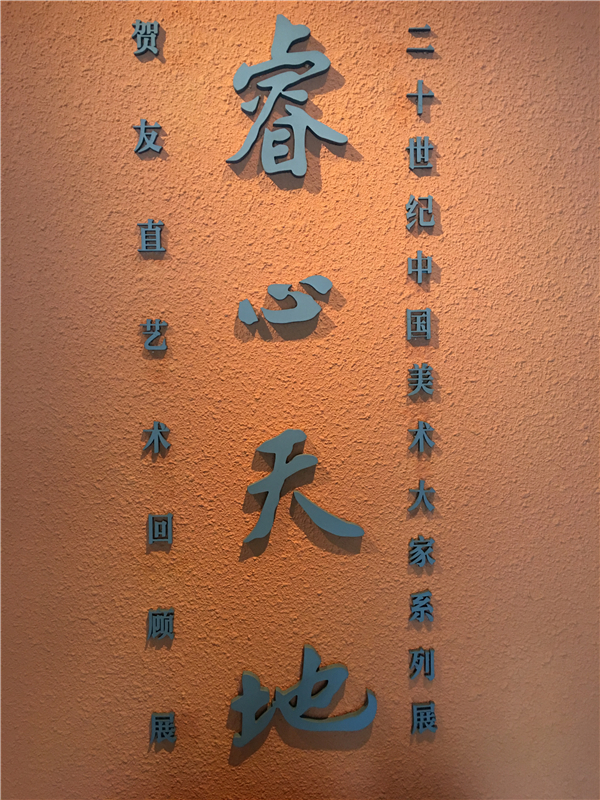 二十世纪中国美术大家系列展
睿心天地
贺友直艺术回顾展